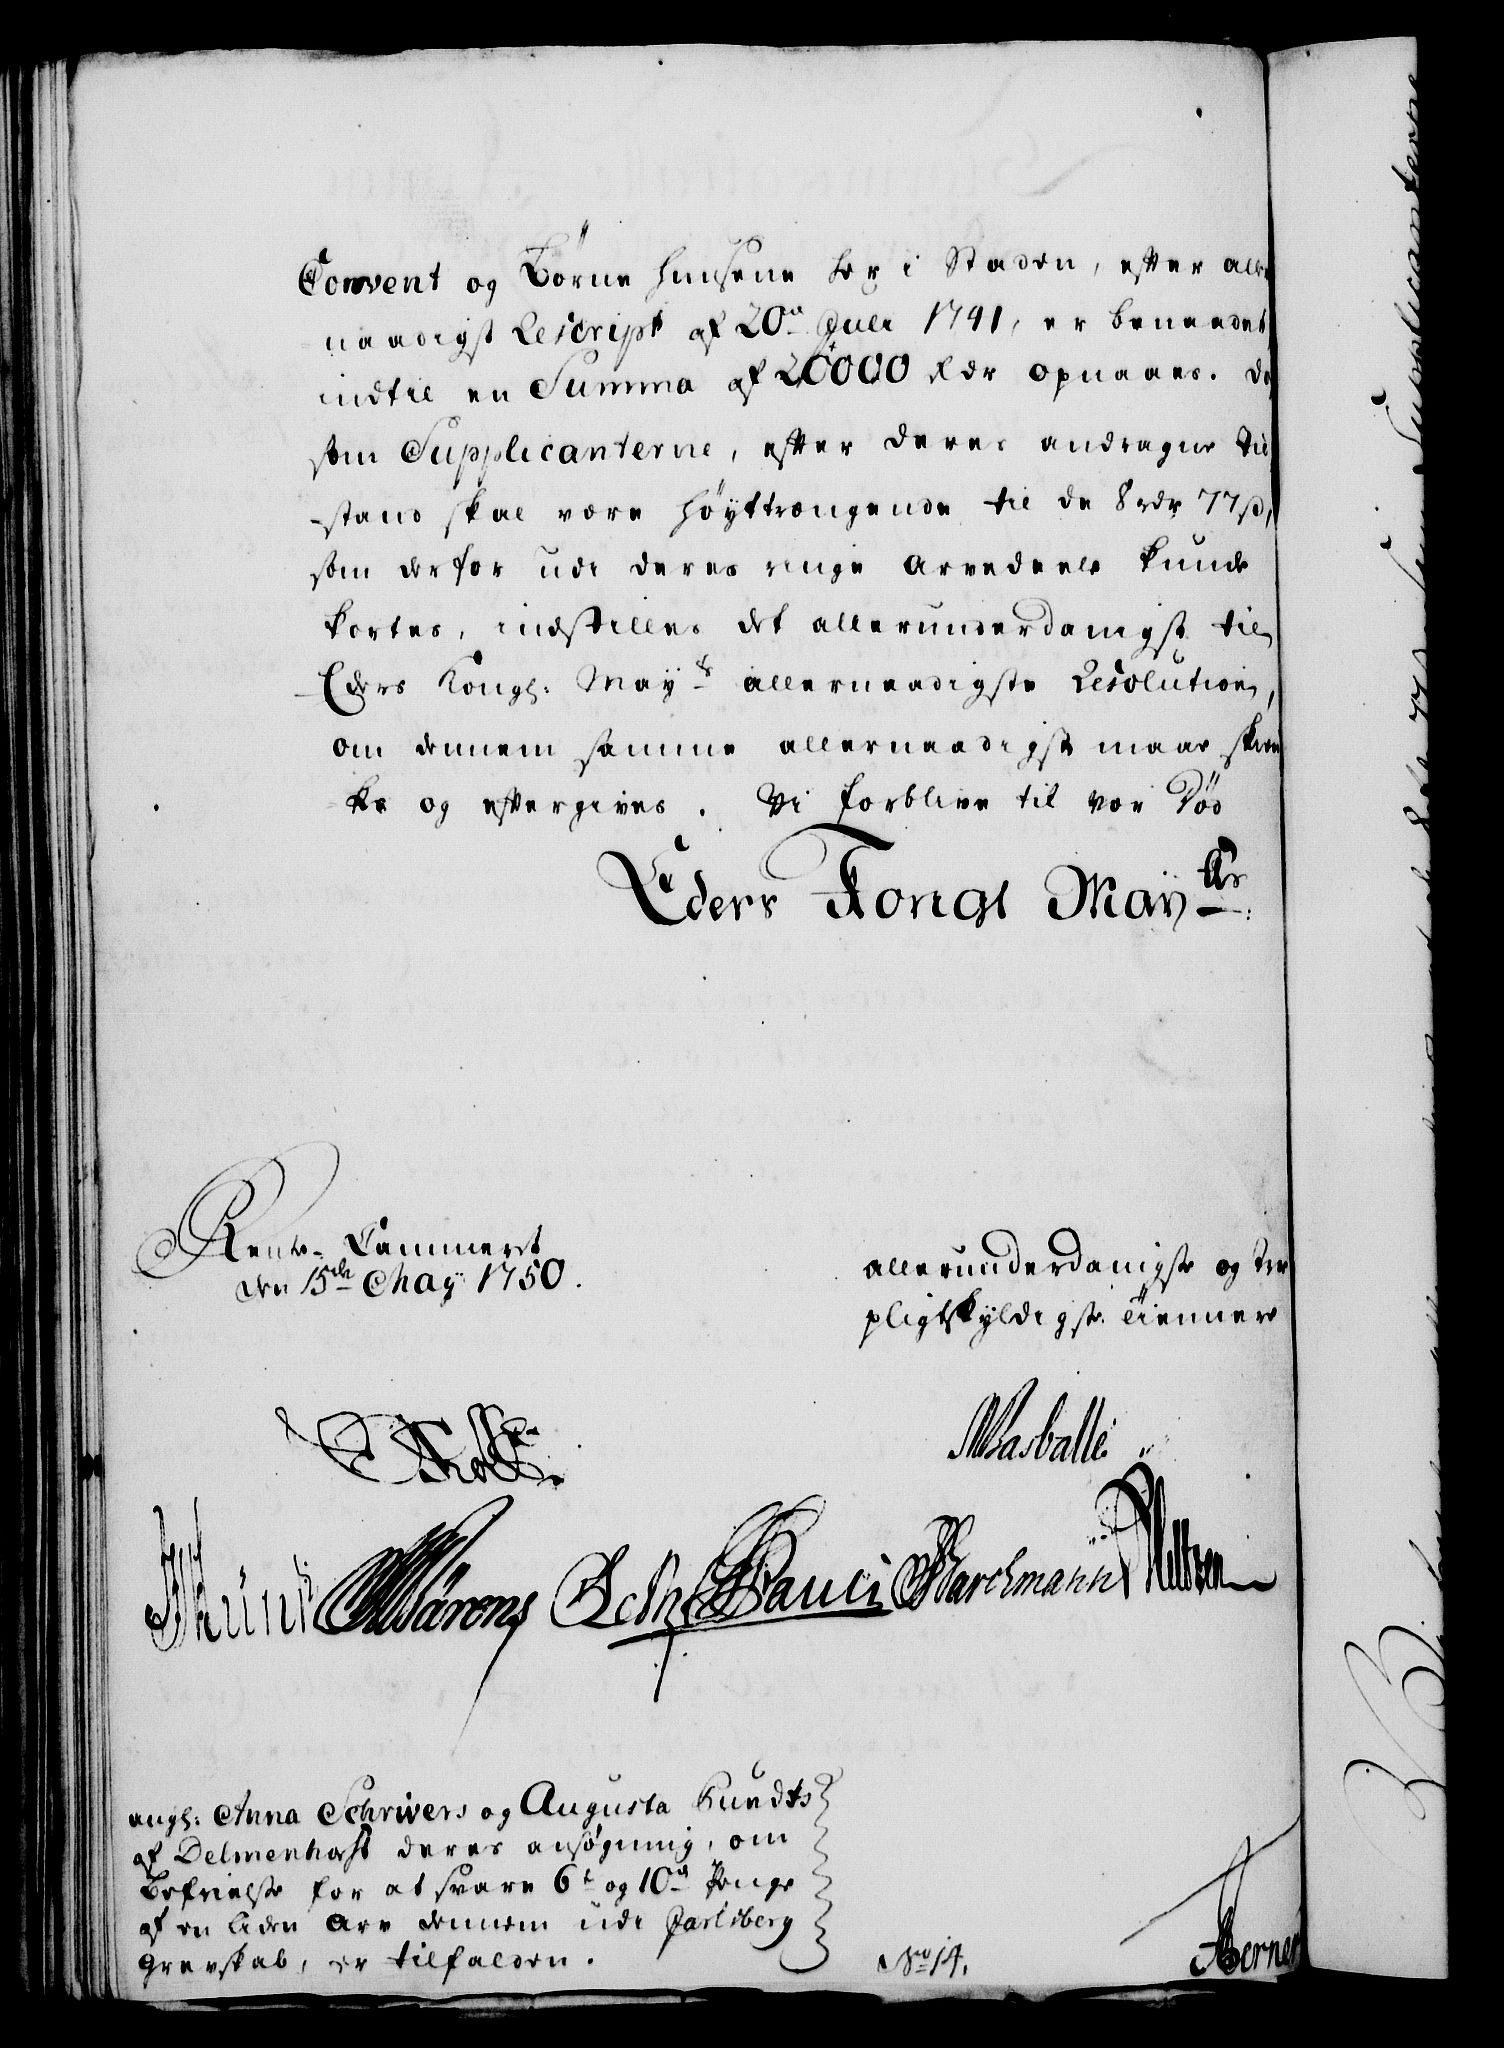 Convent og Börne Huusene her i Staden, efter aller
naadigst Rescript af 20de Julii 1741, er benaadet,
indtil en Summa af 20000 Rdr opnaaes. Da
som Supplicanterne, efter deres andragne Til
stand skal være höyttrængende til de 8 rdr 77 s,
som derfor udi deres ringe Arvedeele kunde
kortes, indstilles det allerunderdanigst til
Eders Kongl: Mayts allernaadigste Resolution,
om dennem samme allernaadigst maae skien
kes og eftergives. Vi forblive til vor Död
Eders Kongl Mayts:
Rente-Cammeret
den 15de May 1750.
allerunderdanigste og troe
pligtskyldigste tienner
JKünt Wärens Pauli Barchmann
angl: Anna Schrivers og Augusta Kundts
af Delmenhorst deres ansögning, om
Befrielse for at svare 6te og 10de Penge
af en liden Arv dennem udi Jarlsberg
Grevskab, er tilfalden.
No 14.